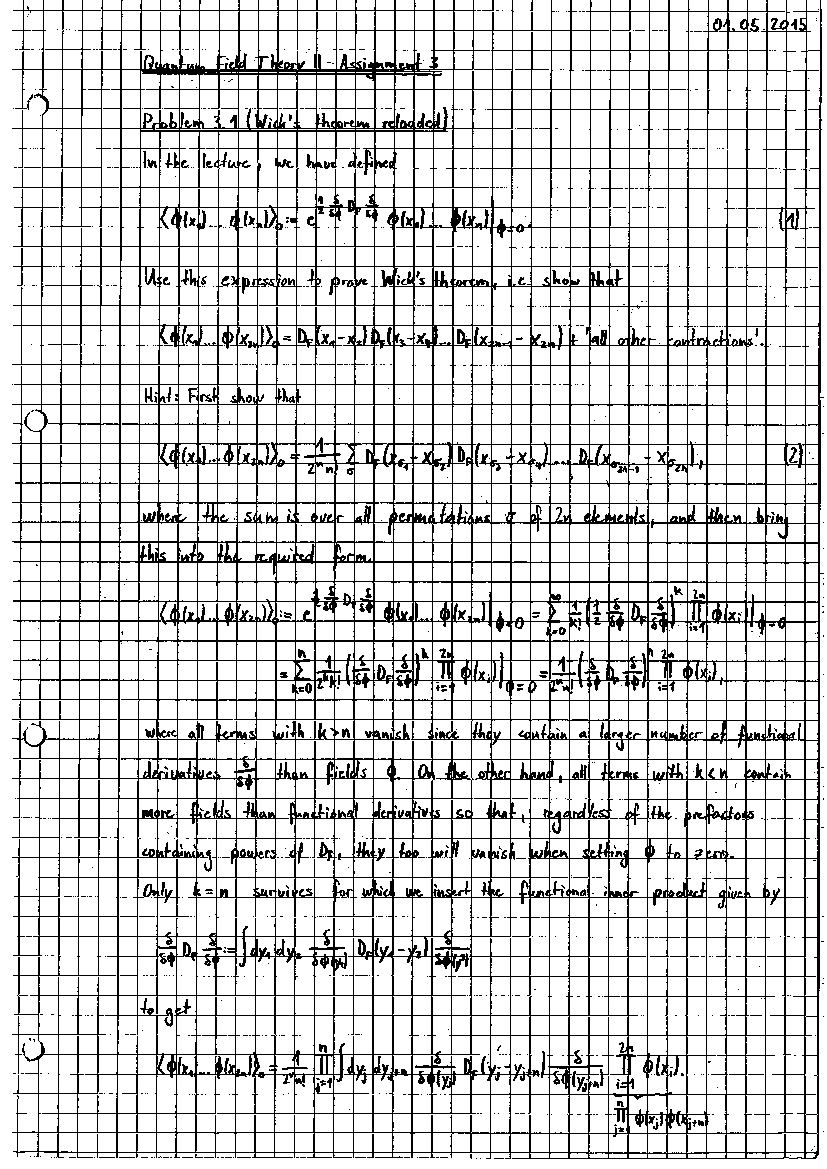 01.05.2015
Quantum Field Theory II - Assignment 3
Problem 3.1 (Wick's theorem reloaded)
In the lecture, we have defined
⟨ϕ(x₁)...ϕ(xₙ)⟩₀ := e^{½ δ/δϕ D_F δ/δϕ} ϕ(x₁)...ϕ(xₙ)|_{ϕ=0}. (1)
Use this expression to prove Wick's theorem, i.e. show that
⟨ϕ(x₁)...ϕ(x₂ₙ)⟩₀ = D_F(x₁-x₂) D_F(x₃-x₄)... D_F(x₂ₙ₋₁-x₂ₙ) + 'all other contractions'.
Hint: First show that
⟨ϕ(x₁)...ϕ(x₂ₙ)⟩₀ = 1/(2ⁿn!) ∑_σ D_F(x_{σ₁}-x_{σ₂}) D_F(x_{σ₃}-x_{σ₄}) ... D_F(x_{σ₂ₙ₋₁}-x_{σ₂ₙ}), (2)
where the sum is over all permutations σ of 2n elements, and then bring
this into the required form.
⟨ϕ(x₁)...ϕ(x₂ₙ)⟩₀ := e^{½ δ/δϕ D_F δ/δϕ} ϕ(x₁)...ϕ(x₂ₙ)|_{ϕ=0} = ∑_{k=0}^{∞} 1/k! (½ δ/δϕ D_F δ/δϕ)^k ∏_{i=1}^{2n} ϕ(x_i)|_{ϕ=0}
= ∑_{k=0}^{n} 1/(2^k k!) (δ/δϕ D_F δ/δϕ)^k ∏_{i=1}^{2n} ϕ(x_i)|_{ϕ=0} = 1/(2ⁿn!) (δ/δϕ D_F δ/δϕ)ⁿ ∏_{i=1}^{2n} ϕ(x_i),
where all terms with k>n vanish since they contain a larger number of functional
derivatives δ/δϕ than fields ϕ. On the other hand, all terms with k<n contain
more fields than functional derivatives so that, regardless of the prefactors
containing powers of D_F, they too will vanish when setting ϕ to zero.
Only k=n survives for which we insert the functional inner product given by
δ/δϕ D_F δ/δϕ := ∫dy₁ dy₂ δ/δϕ(y₁) D_F(y₁-y₂) δ/δϕ(y₂)
to get
⟨ϕ(x₁)...ϕ(x₂ₙ)⟩₀ = 1/(2ⁿn!) ∏_{j=1}^{n} ∫dy_j dy_{j+n} δ/δϕ(y_j) D_F(y_j-y_{j+n}) δ/δϕ(y_{j+n}) ∏_{i=1}^{2n} ϕ(x_i).
∏_{j=1}^{n} ϕ(x_j) ϕ(x_{j+n})